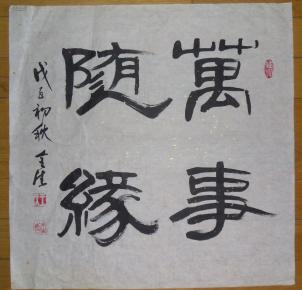 萬事
随緣
戊子初秋